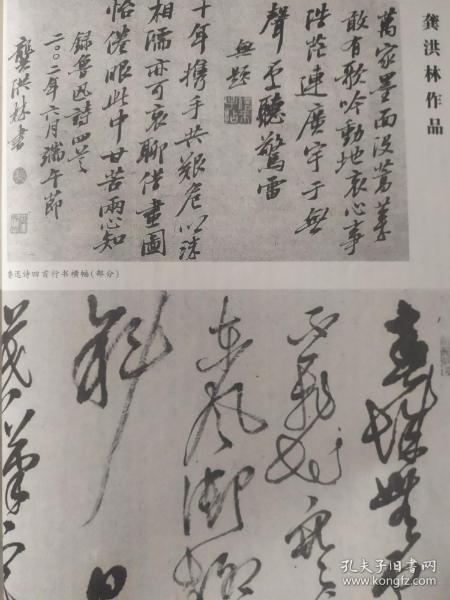 龚洪林作品
萬家墨面没蒿莱
敢有歌吟動地哀心事
浩茫連廣宇于無
聲處聽驚雷
無題
十年携手共艱危以沫
相濡亦可哀聊借畫圖
怡倦眼此中甘苦兩心知
録魯迅詩四首
二〇〇二年六月端午節
龔洪林書
鲁迅诗四首行书横幅(部分)
春城無
不飛花寒
東風御柳
斜日
孔夫子旧书网
book.kongfz.com